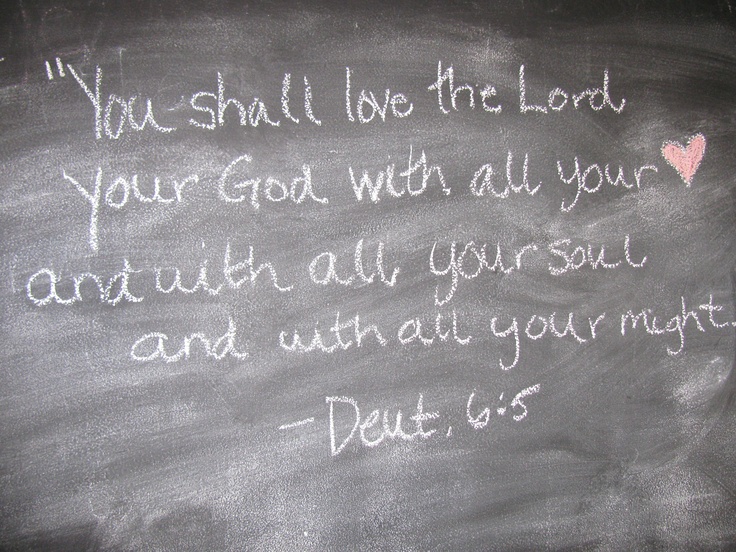 "You shall love the Lord
your God with all your ♥
and with all your soul
and with all your might.
- Deut. 6:5